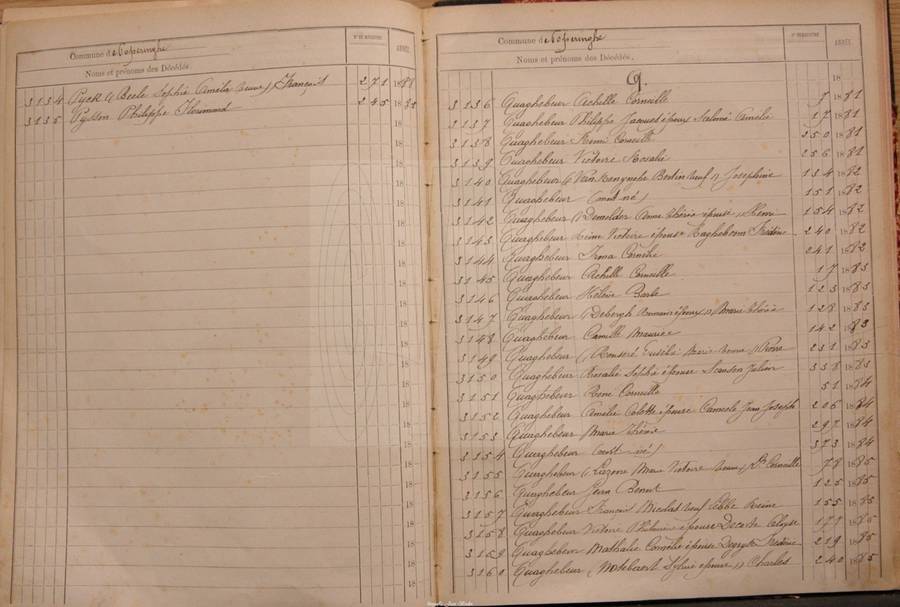 Commune de Poperinghe
Noms et prénoms des Décédés.
N° DU REGISTRE
ANNÉE
3134 Pyck (/ Beele Sophie Amelie veuve /) François 271 1888
3135 Pysson Philippe Florimond 245 1888
Commune de Poperinghe
Noms et prénoms des Décédés.
N° DU REGISTRE
ANNÉE
Q. 18
3136 Quaghebeur Achille Corneille 7 1881
3137 Quaghebeur Philippe Jacques époux Amélie 17 1881
3138 Quaghebeur Remi Corneille 250 1881
3139 Quaghebeur Victoire Rosalie 256 1881
3140 Quaghebeur (/ Bertin veuf /) Joséphine 134 1882
3141 Quaghebeur (mort né) 151 1882
3142 Quaghebeur (/ Demulder Anne Thérèse épouse /) Henri 154 1882
3143 Quaghebeur Reine Victoire épouse 240 1882
3144 Quaghebeur Irma Cornélie 241 1882
3145 Quaghebeur Achille Corneille 17 1883
3146 Quaghebeur Hélène Barbe 123 1883
3147 Quaghebeur (/ Debergh Romain époux /) Marie Thérèse 128 1883
3148 Quaghebeur Camille Maurice 142 1883
3149 Quaghebeur (/ Eusébie Marie veuve /) Pierre 231 1883
3150 Quaghebeur Rosalie Sophie épouse Julien 338 1883
3151 Quaghebeur René Corneille 51 1884
3152 Quaghebeur Amelie Colette épouse Jean Joseph 206 1884
3153 Quaghebeur Marie Thérèse 297 1884
3154 Quaghebeur (mort né) 373 1884
3155 Quaghebeur (/ Marie Victoire veuve /) Corneille 78 1885
3156 Quaghebeur Jean Benoit 125 1885
3157 Quaghebeur François Nicolas veuf Reine 155 1885
3158 Quaghebeur Victoire Philomène épouse 171 1885
3159 Quaghebeur Nathalie Cornélie épouse 219 1885
3160 Quaghebeur (Sylvie épouse /) Charles 240 1885